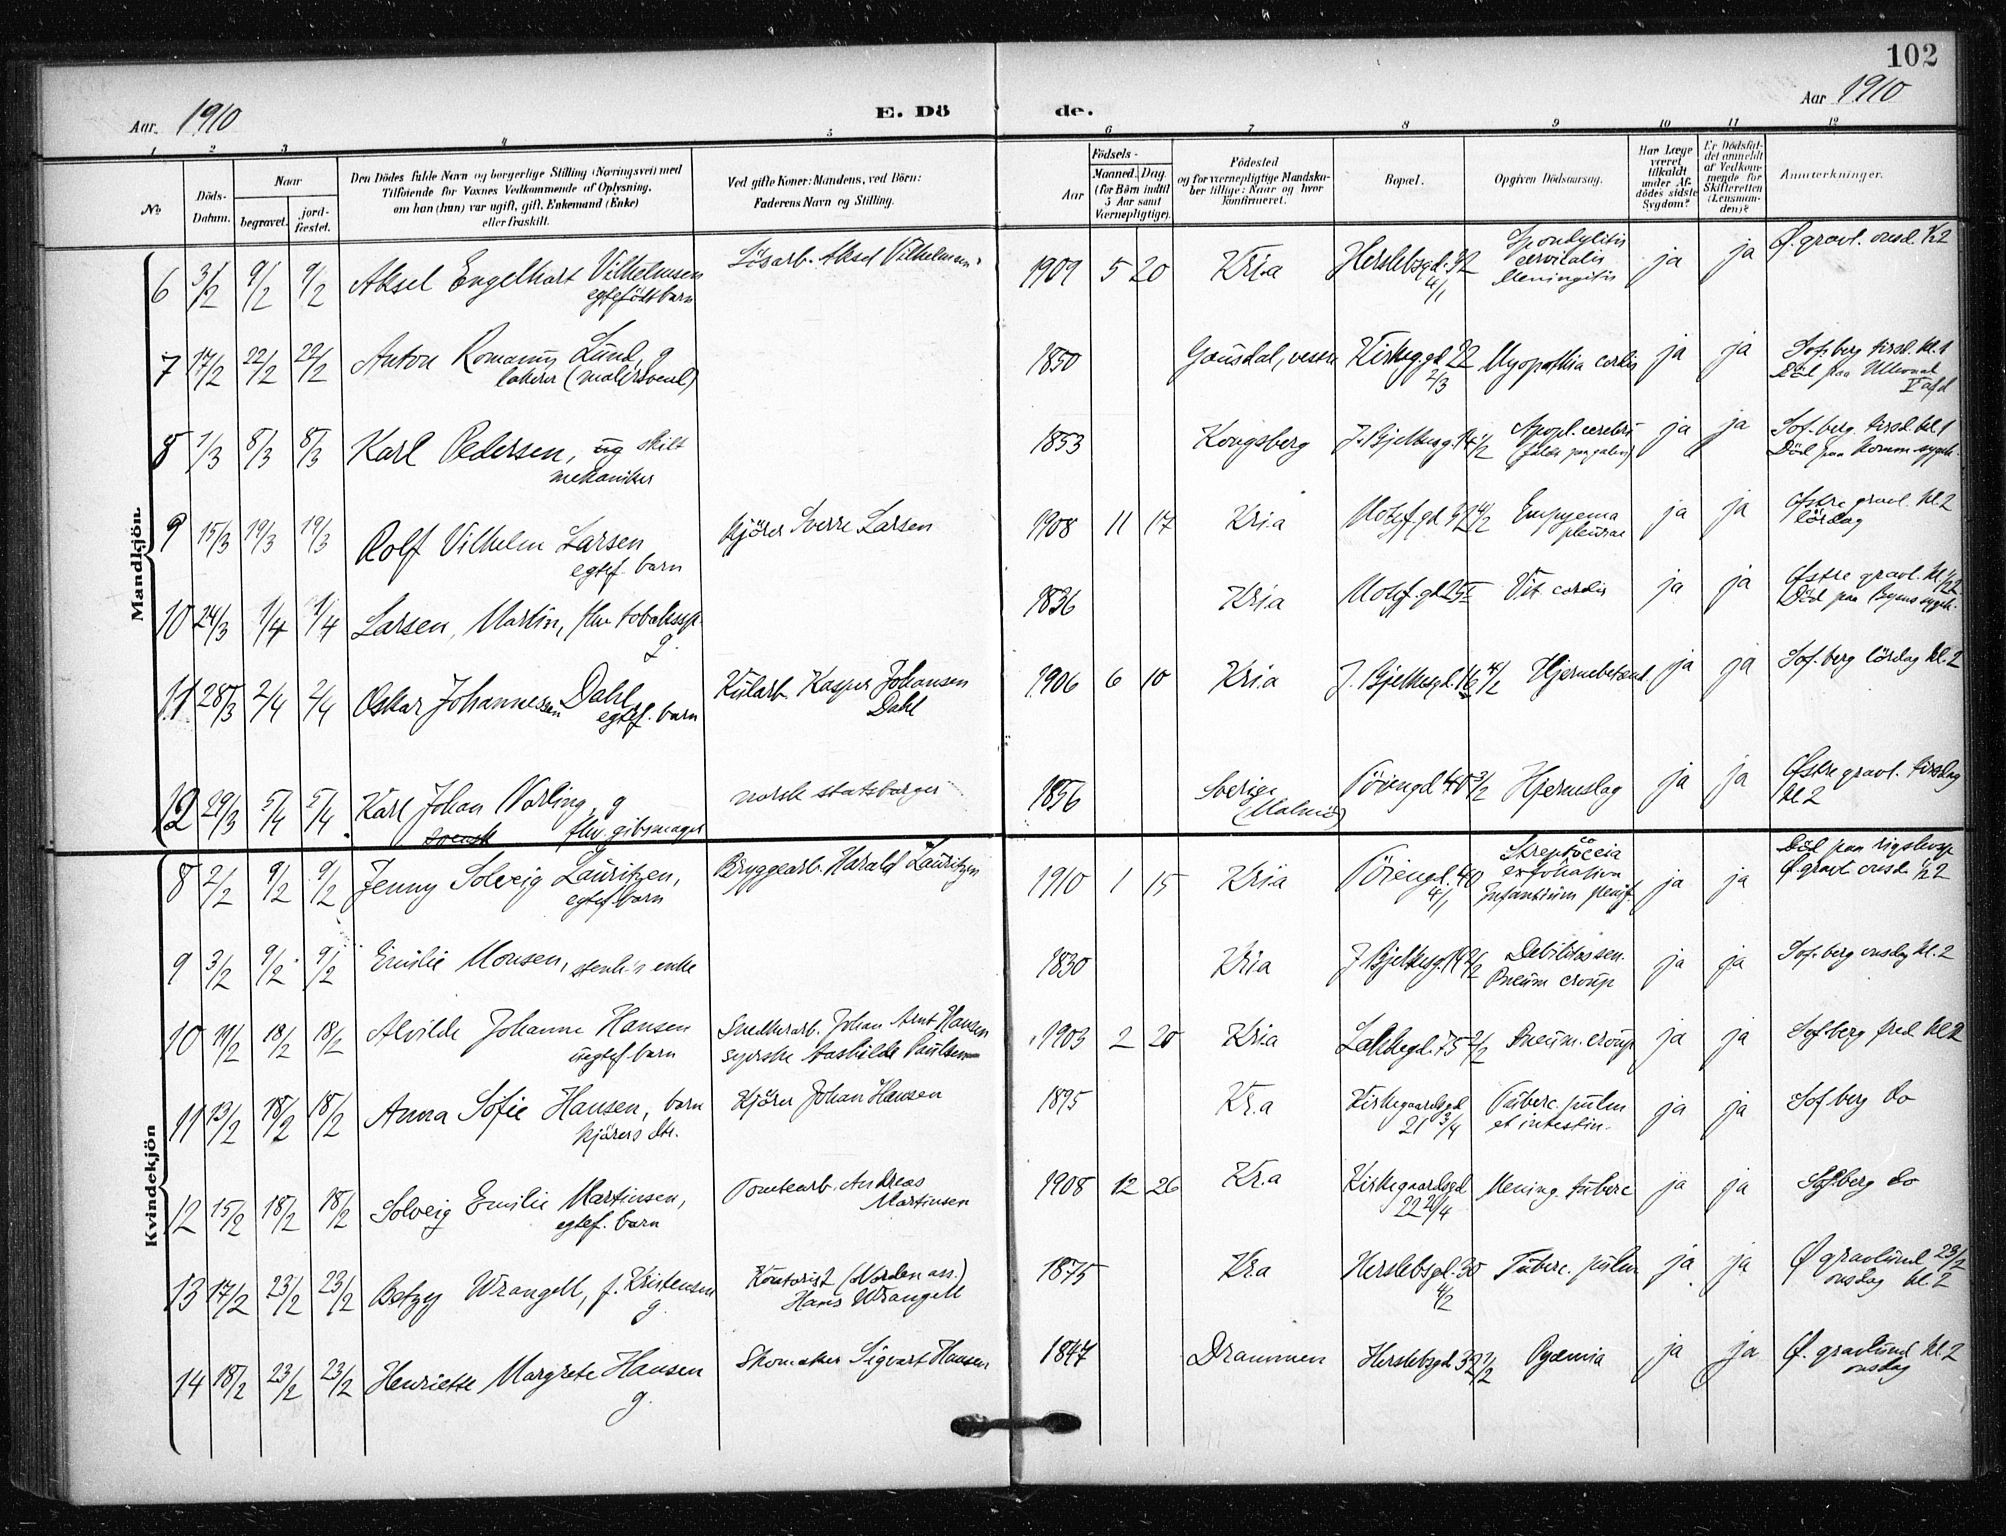 102
Aar. 1910
E. Dö
de.
Aar 1910
1 2 3 4 5 6 7 8 9 10 11 12
No
Döds-Datum.
Naar
begravet.
jord-fæstet.
Den Dödes fulde Navn og borgerlige Stilling (Næringsvei) med
Tilföiende for Voxnes Vedkommende af Oplysning,
om han (hun) var ugift, gift, Enkemand (Enke)
eller fraskilt.
Ved gifte Koner: Mandens, ved Börn:
Faderens Navn og Stilling.
Födsels-
Aar
Maaned. Dag.
(for Börn indtil
5 Aar samt
Værnepligtige).
Födested
og for værnepligtige Mandska-
ber tillige: Naar og hvor
konfirmeret.
Bopæl.
Opgiven Dödsaarsag.
Har Læge
været
tilkaldt
under Af-
dödes sidste
Sygdom?
Er Dödsfal-
det anmeldt
af Vedkom-
mende for
Skifteretten
(Lensman-
den)?
Anmærkninger.
Mandkjön.
6 3/2 9/2 9/2 Aksel Engelhart Vilhelmsen egtefödt barn Lösarb. Aksel Vilhelmsen 1909 5 20 Kr.i.a Herslebsgd. 32 4/1 Spondylitis cervikalis Meningitis ja ja Ø. gravl. onsd. ½2
7 17/2 22/2 22/2 Anton Romanus Lund, g lakerer (malersvend) 1850 Gausdal, vestre Kirkeg.gd 22 2/3 Myopathia cordis ja ja Sof. berg tirsd. kl. 1 Död paa Ullevaal V afd
8 1/3 8/3 8/3 Karl Pedersen, skilt mekaniker 1853 Kongsberg J. Bjelkesg. 14 1/2 Apopl. cerebri ja ja Sof. berg. tirsd. kl. 1 Död paa Komm sygeh.
9 15/3 19/3 19/3 Rolf Vilhelm Larsen egtef. barn Kjörer Sverre Larsen 1908 11 17 Kr.i.a Motzf.gd Empyema pleurae ja ja Østre gravl. kl. 2 lördag
10 24/3 1/4 1/4 Larsen, Martin, fhv tobakssp. g. 1836 Kr.i.a Motzf.gd 25 I Vit. cordis ja ja Østre gravl. kl ½2 Död paa Byens sygeh.
11 28/3 2/4 2/4 Oskar Johannessen Dahl egtef. barn Kularb. Kasper Johansen Dahl 1906 6 10 Kr.i.a J. Bjelkesgd. 16 4/2 Hjernebetænd. ja ja Sof. berg lördag kl. 2
12 29/3 5/4 5/4 Karl Johan Norling, g svensk fhv. gibsmager norsk statsborger 1856 Sverige (Malmö) Töiengd 40 3/2 Hjerneslag ja ja Østre gravl. tirsdag kl 2
Kvindekjön
8 2/2 9/2 9/2 Jenny Solveig Lauritzen, egtef. barn Bryggearb. Harald Lauritzen 1910 1 15 Kr.i.a Töiengd. 40 4/1 ja ja Död paa rigshosp. Ø gravl onsd. ½2
9 3/2 9/2 9/2 Emilie Monsen, stenh.s enke 1830 Kr.i.a J. Bjelkesg. 19 2/2 Debilitas sen. Pneum croup ja ja Sof. berg onsdag kl. 2
10 11/2 18/2 18/2 Alvilde Johanne Hansen uegtef. barn Snedkerarb. Johan Arnt Hansen syerske Paulsen 1903 2 20 Kr.i.a Lakkegd. 75 2/2 Pneum. croup ja ja Sofberg fred. kl 2
11 13/2 18/2 18/2 Anna Sofie Hansen, barn kjörers dtr. Kjörer Johan Hansen 1895 Kr.a Kirkegaardsgd 21 3/4 Tuberc. pulm et intestin. ja ja Sof berg do
12 15/2 18/2 18/2 Solveig Emilie Martinsen, egtef. barn Tomtearb. Andreas Martinsen 1908 12 26 Kr.a Kirkegaardsgd 22 Mening. tuberc ja ja Sofberg do
13 17/2 23/2 23/2 Betzy Wrangell, f. Kristensen g. Kontorist (Norden ass.) Hans Wrangell 1875 Kr.a Herslebsgd. 30 4/2 Tuberc. pulm ja ja Ø gravlund 23/2 onsdag kl. 2
14 18/2 23/2 23/2 Henriette Margrete Hansen g. Skomaker Sigvart Hansen 1847 Drammen Herslebsgd. 32 1/2 Pyæmia ja ja Ø. gravlund kl. 2 onsdag